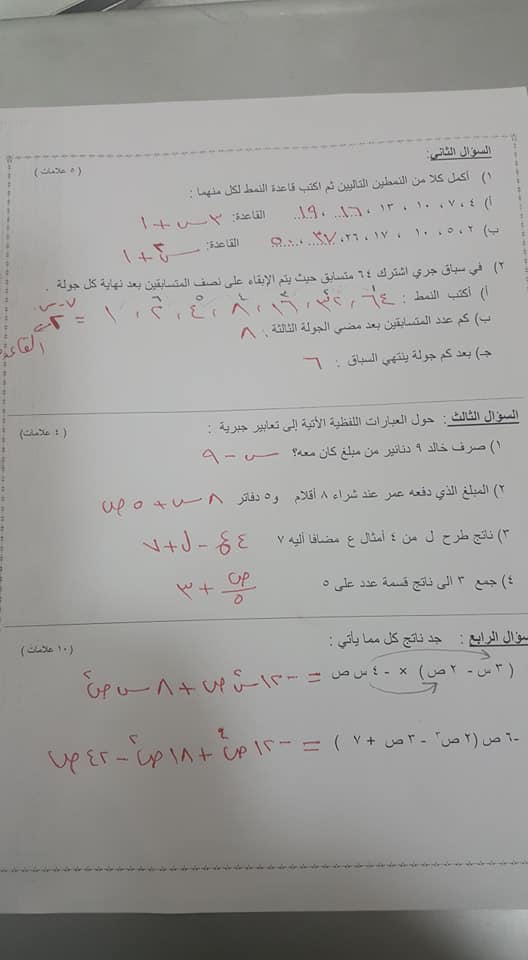 السؤال الثاني:
( ٥ علامات )
١) أكمل كلا من النمطين التاليين ثم اكتب قاعدة النمط لكل منهما :
أ) ٤ ، ٧ ، ١٠ ، ١٣ ، ١٦ ، ١٩ القاعدة: ٣س + ١
ب) ٢ ، ٥ ، ١٠ ، ١٧ ، ٢٦، ٣٧ ، ٥٠ القاعدة: س٢ + ١
٢) في سباق جري اشترك ٦٤ متسابق حيث يتم الإبقاء على نصف المتسابقين بعد نهاية كل جولة .
أ) أكتب النمط : ٦٤ ، ٣٢ ، ١٦ ، ٨ ، ٤ ، ٢ ، ١ = ٢^(٧-س)
القاعدة
ب) كم عدد المتسابقين بعد مضي الجولة الثالثة : ٨
جـ) بعد كم جولة ينتهي السباق : ٦
السؤال الثالث : حول العبارات اللفظية الأتية إلى تعابير جبرية :
( ٤ علامات )
١) صرف خالد ٩ دنانير من مبلغ كان معه؟ س - ٩
٢) المبلغ الذي دفعه عمر عند شراء ٨ أقلام و٥ دفاتر ٨س + ٥ص
٣) ناتج طرح ل من ٤ أمثال ع مضافا أليه ٧ ٤ع - ل + ٧
٤) جمع ٣ الى ناتج قسمة عدد على ٥ ص/٥ + ٣
سؤال الرابع : جد ناتج كل مما يأتي :
( ١٠ علامات )
( ٣س - ٢ص ) × - ٤ س ص = -١٢س٢ص + ٨س ص٢
-٦ ص (٢ص٣ - ٣ص + ٧ ) = -١٢ص٤ + ١٨ص٢ - ٤٢ص